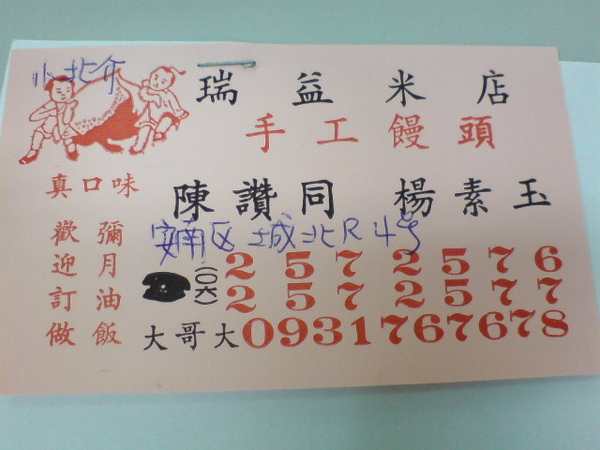 小北介
瑞益米店
手工饅頭
真口味
陳讚同 楊素玉
安南区城北R4号
歡迎訂做
彌月油飯
(〇六)
2572576
2572577
大哥大0931767678